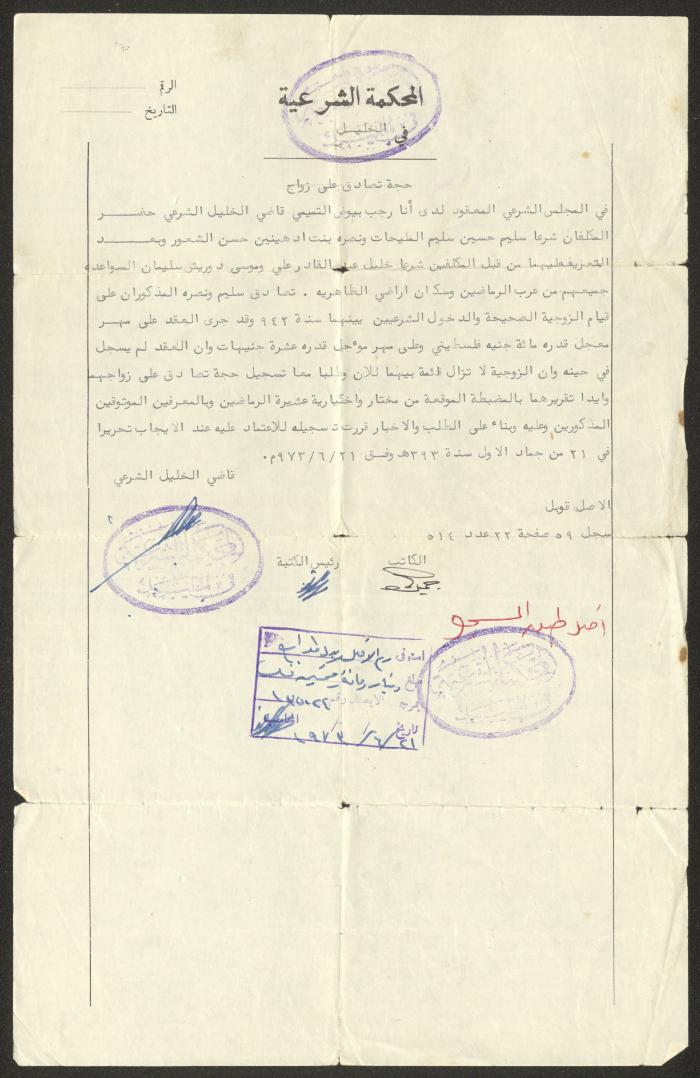 المحكمة الشرعية
في الخليل
الرقم
التاريخ
حجة تصادق على زواج
في المجلس الشرعي المعقود لدى أنا رجب بيوض التميمي قاضي الخليل الشرعي حضر
المكلفان شرعا سليم حسين سليم المليحات ونصره بنت ادهينين حسن الشعور وبعد
التعريف عليهما من قبل المكلفين شرعا خليل عبد القادر علي وموسى دوريش سليمان السواعده
جميعهم من عرب الرماضين وسكان اراضي الظاهريه . تصادق سليم ونصره المذكوران على
قيام الزوجية الصحيحة والدخول الشرعيين بينهما سنة ٩٤٢ وقد جرى العقد على مهر
معجل قدره مائة جنيه فلسطيني وعلى مهر مؤجل قدره عشرة جنيهات وان العقد لم يسجل
في حينه وان الزوجية لا تزال قائمة بيهما للان وطلبا معا تسجيل حجة تصادق على زواجهما
وايدا تقريرهما بالمضبطة الموقعة من مختار واختيارية عشيرة الرماضين وبالمعرفين الموثوقين
المذكورين وعليه وبناء على الطلب والاخبار قررت تسجيله للاعتماد عليه عند الايجاب تحريرا
في ٢١ من جماد الاول سنة ٣٩٣هـ وفق ٩٧٣/٦/٢١م.
قاضي الخليل الشرعي
الاصل قوبل
سجل ٥٩ صفحة ٢٢ عدد ٥١٤
الكاتب
رئيس الكتبة
استوفي رسم
مبلغ
بموجب الايصال رقم ١٣٥٠٢٢
تاريخ ١٩٧٣/٦/٢١ المحاسب